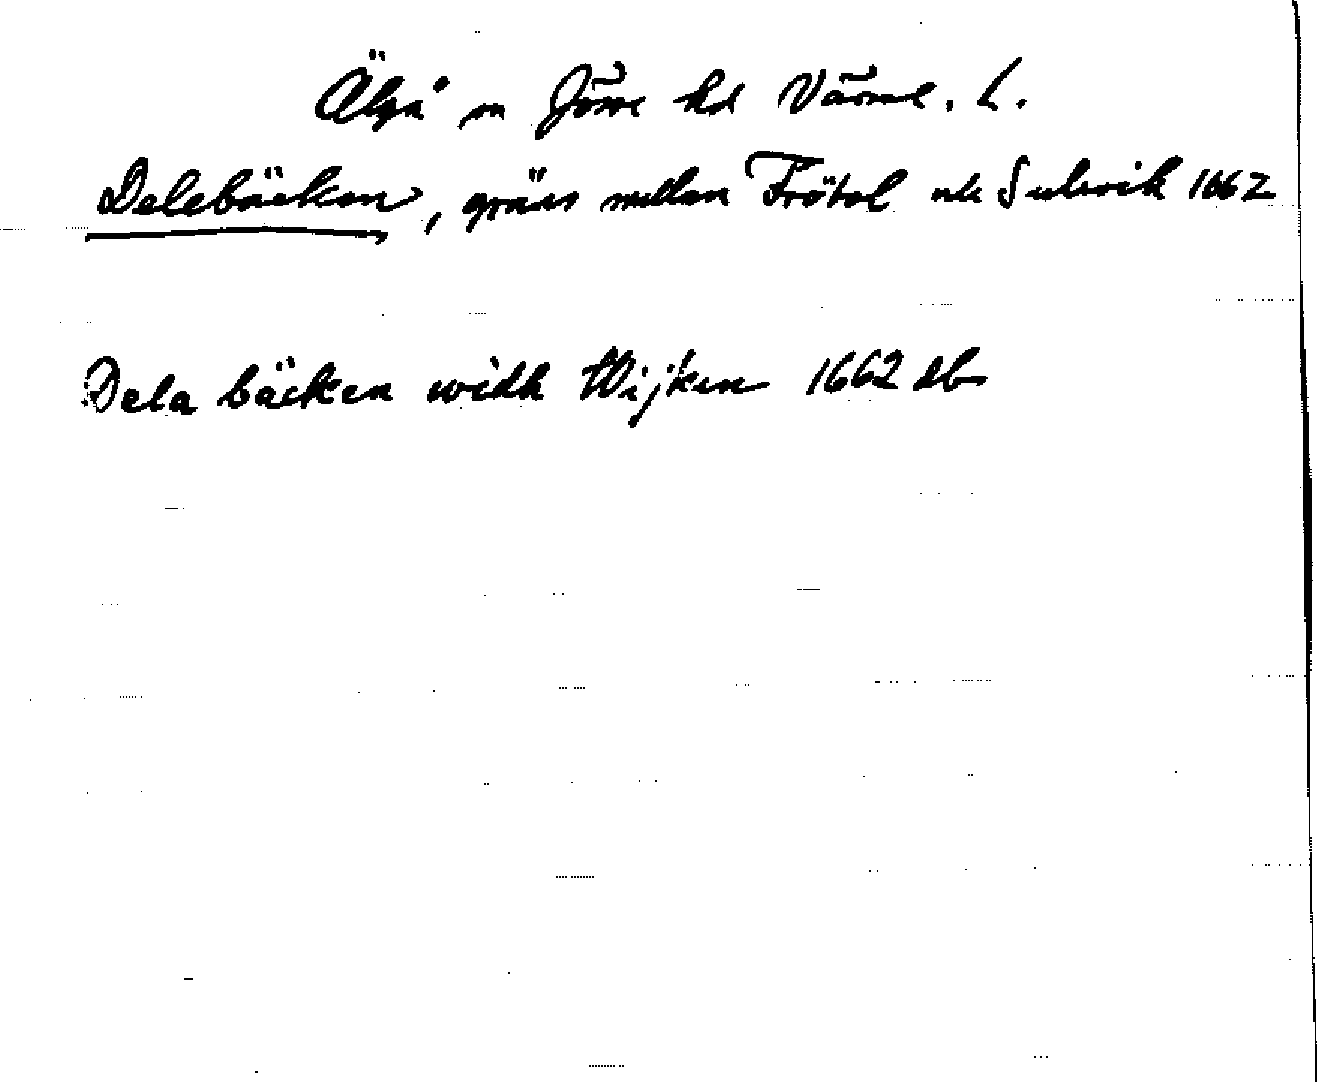 Älgå sn Jösse hd Värml. L.
Delebäcken, gräns mellan Frötol och Sulvik 1662
Dela bäcken widh Wijken 1662 db